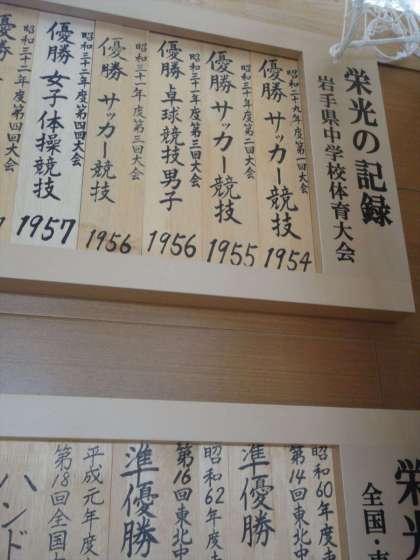 栄光の記録
岩手県中学校体育大会
昭和二十九年度第一回大会
優勝 サッカー競技
1954
昭和三十年度第二回大会
優勝 サッカー競技
1955
昭和三十一年度第三回大会
優勝 卓球競技男子
1956
昭和三十一年度第三回大会
優勝 サッカー競技
1956
昭和三十二年度第四回大会
優勝 女子体操競技
1957
昭和三十二年度第四回大会
優勝
栄光
全国・東
昭和60年度
第14回東北中
準優勝
昭和62年度
第16回東北中
準優勝
平成元年度
第18回全国
ハンド